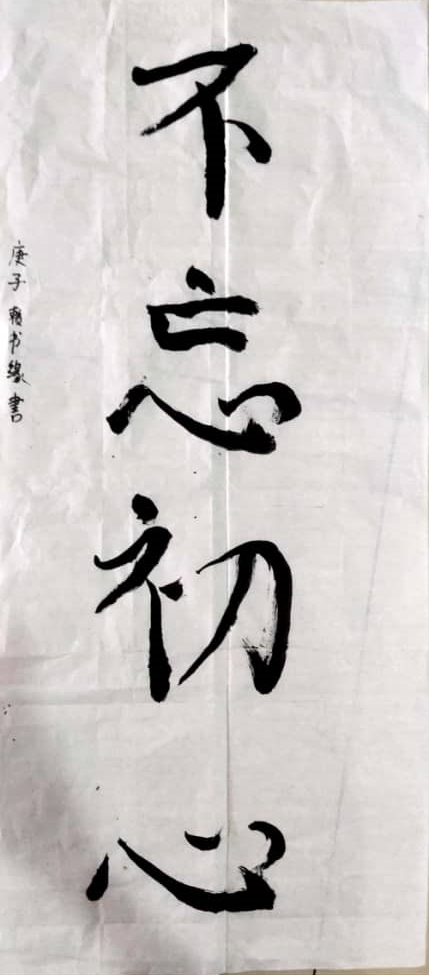 不忘初心
庚子 赖书缘書